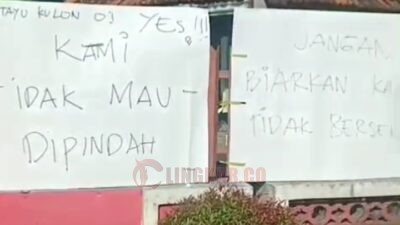 TAYU KULON 03 YES!!!
KAMI
TIDAK MAU
DIPINDAH
JANGAN
BIARKAN KA
TIDAK BERSE
LINGKAR.CO